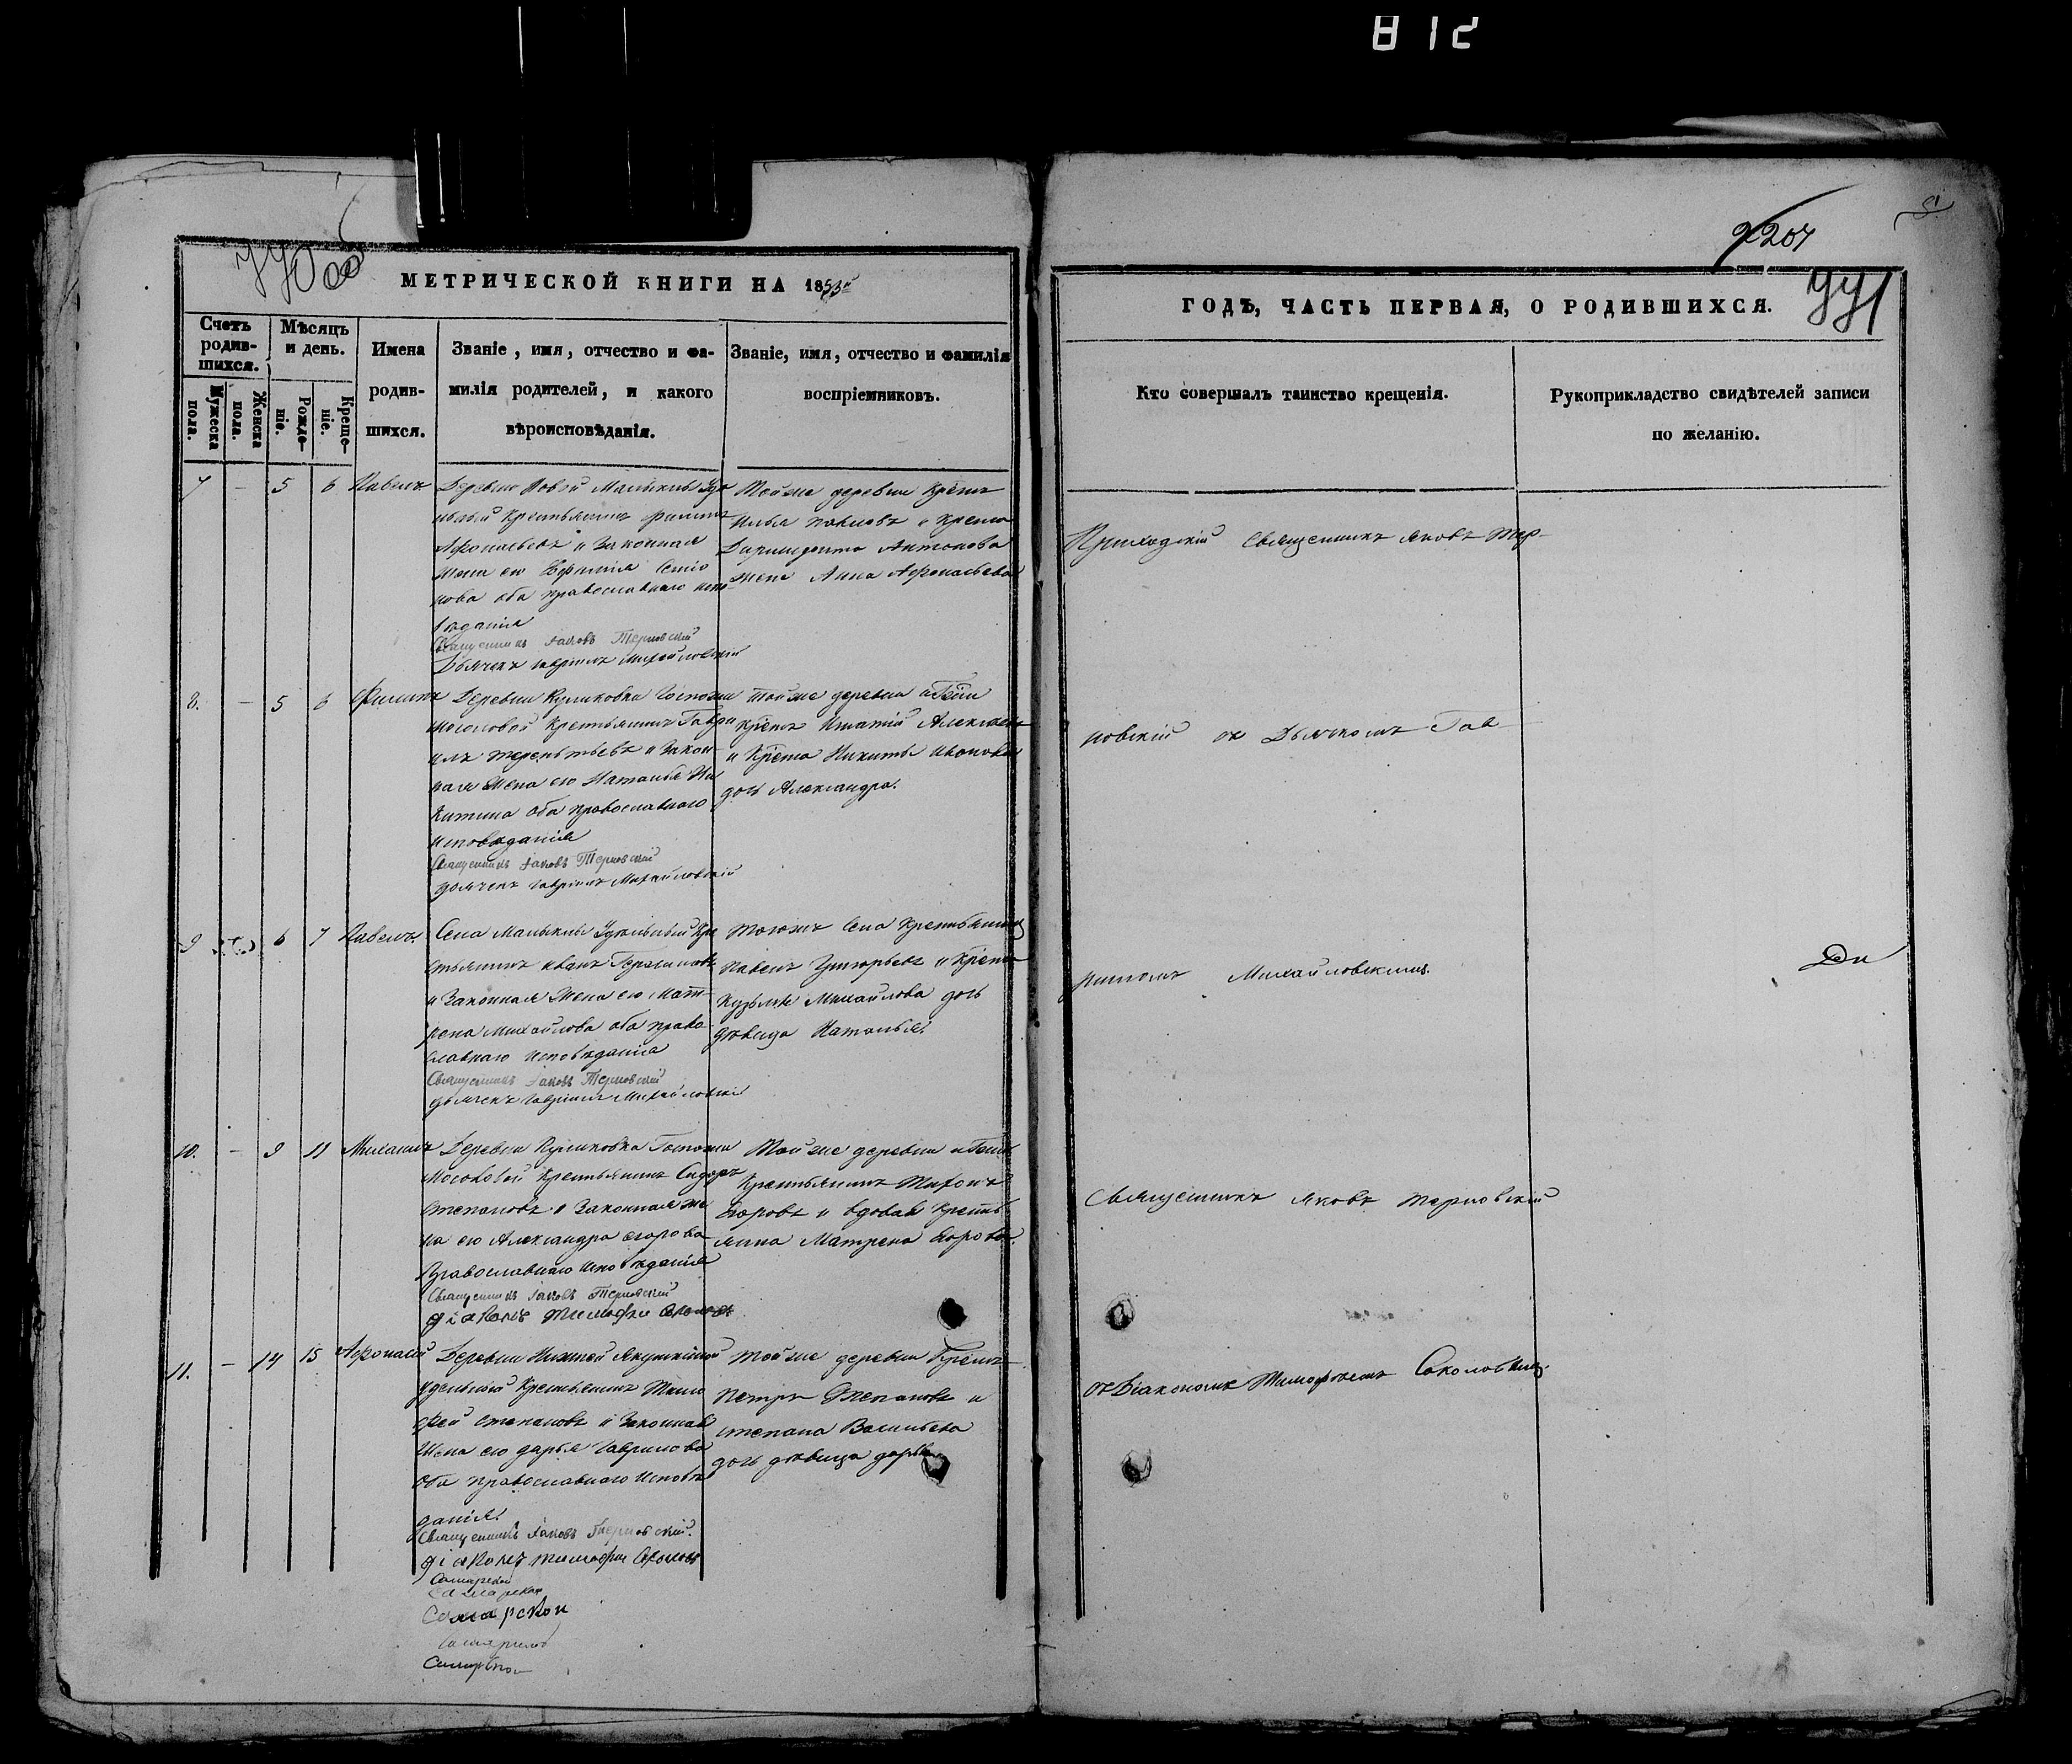 812
207
МЕТРИЧЕСКОЙ КНИГИ НА 1853й
ГОДЪ, ЧАСТЬ ПЕРВАЯ, О РОДИВШИХСЯ.
Счетъ родив-шихся.
Мужеска пола.
Женска пола.
Мѣсяцъ и день.
Рожде-ніе.
Креще-ніе.
Имена родив-шихся.
Званіе, имя, отчество и фа-
милія родителей, и какого
вѣроисповѣданія.
Званіе, имя, отчество и фамилія
воспріемниковъ.
Кто совершалъ таинство крещенія.
Рукоприкладство свидѣтелей записи
по желанію.
7 - 5 6 Павелъ
Деревни Новой Малыклы Удѣ
льный крестьянинъ Филипъ
Афонасьевъ и законная
жена его Семіо
нова оба православнаго испо
вѣданія
Священникъ Іаковъ Терновскій
Дьячекъ Гавріилъ Михайловскій
Тойже деревни крѣнъ
Илья Павловъ и
Антонова
жена Анна Афонасьева
Приходскій Священникъ Яковъ Тер-
8. - 5 6 Филипъ
Деревни Куликовка Госпожи
Мосоловой крестьянинъ Гаври
илъ Терентьевъ и закон
ная жена его Наталья Ни
китина оба православнаго
исповѣданія
Священникъ Іаковъ Терновскій
дьячекъ Гавріилъ Михайловскій
Тойже деревни и Гжи
Игнатій Алексѣевъ
и Никиты Иванова
дочь Александра.
новскій съ Дьячкомъ Гав
9 6 7 Павелъ.
Села Малыклы Удѣльный кре
стьянинъ Иванъ Герасимовъ
и законная жена его Мат
рена Михайлова оба право
славнаго исповѣданія
Священникъ Іаковъ Терновскій
дьячекъ Гавріилъ Михайловскій
Тогожъ села крестьянинъ
Павелъ Григорьевъ и
Кузьмы Михайлова дочь
дѣвица Наталья.
ріиломъ Михайловскимъ.
Ди
10. - 9 11 Михаилъ
Деревни Куликовка Госпожи
Мосоловой крестьянинъ Сидоръ
Степановъ и законная же
на его Александра Егорова
Православнаго исповѣданія
Священникъ Іаковъ Терновскій
діаконъ Тимофей Соколовъ
Тойже деревни и Гжи
крестьянинъ Тихонъ
Егоровъ и вдовая крестья
янка Матрена Егорова.
Священникъ Яковъ Терновскій
11. - 14 15 Афонасій
Деревни Нижней Якушкиной
удельный крестьянинъ Тимо
фей Степановъ и законная
жена его Дарья Гаврилова
оба православнаго исповѣ
данія.
Священникъ Іаковъ Терновскій.
діаконъ Тимофей Соколовъ
Тойже деревни крѣнъ
Петръ Степановъ и
Степана Васильева
дочь дѣвица Дарья
съ Діакономъ Тимофеемъ Соколовымъ.
Самарской
Самарской
Самарской